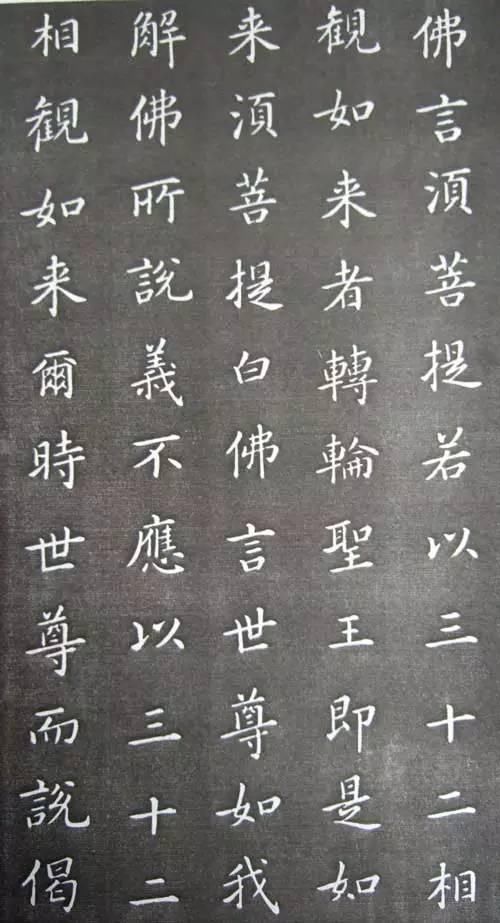 佛言須菩提若以三十二相
觀如来者轉輪聖王即是如
来須菩提白佛言世尊如我
解佛所說義不應以三十二
相觀如来爾時世尊而說偈